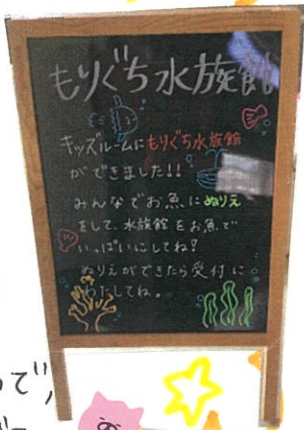 もりぐち水族館
キッズルームにもりぐち水族館
ができました!!
みんなでお魚にぬりえ
をして、水族館をお魚で
いっぱいにしてね?
ぬりえができたら受付に
わたしてね。